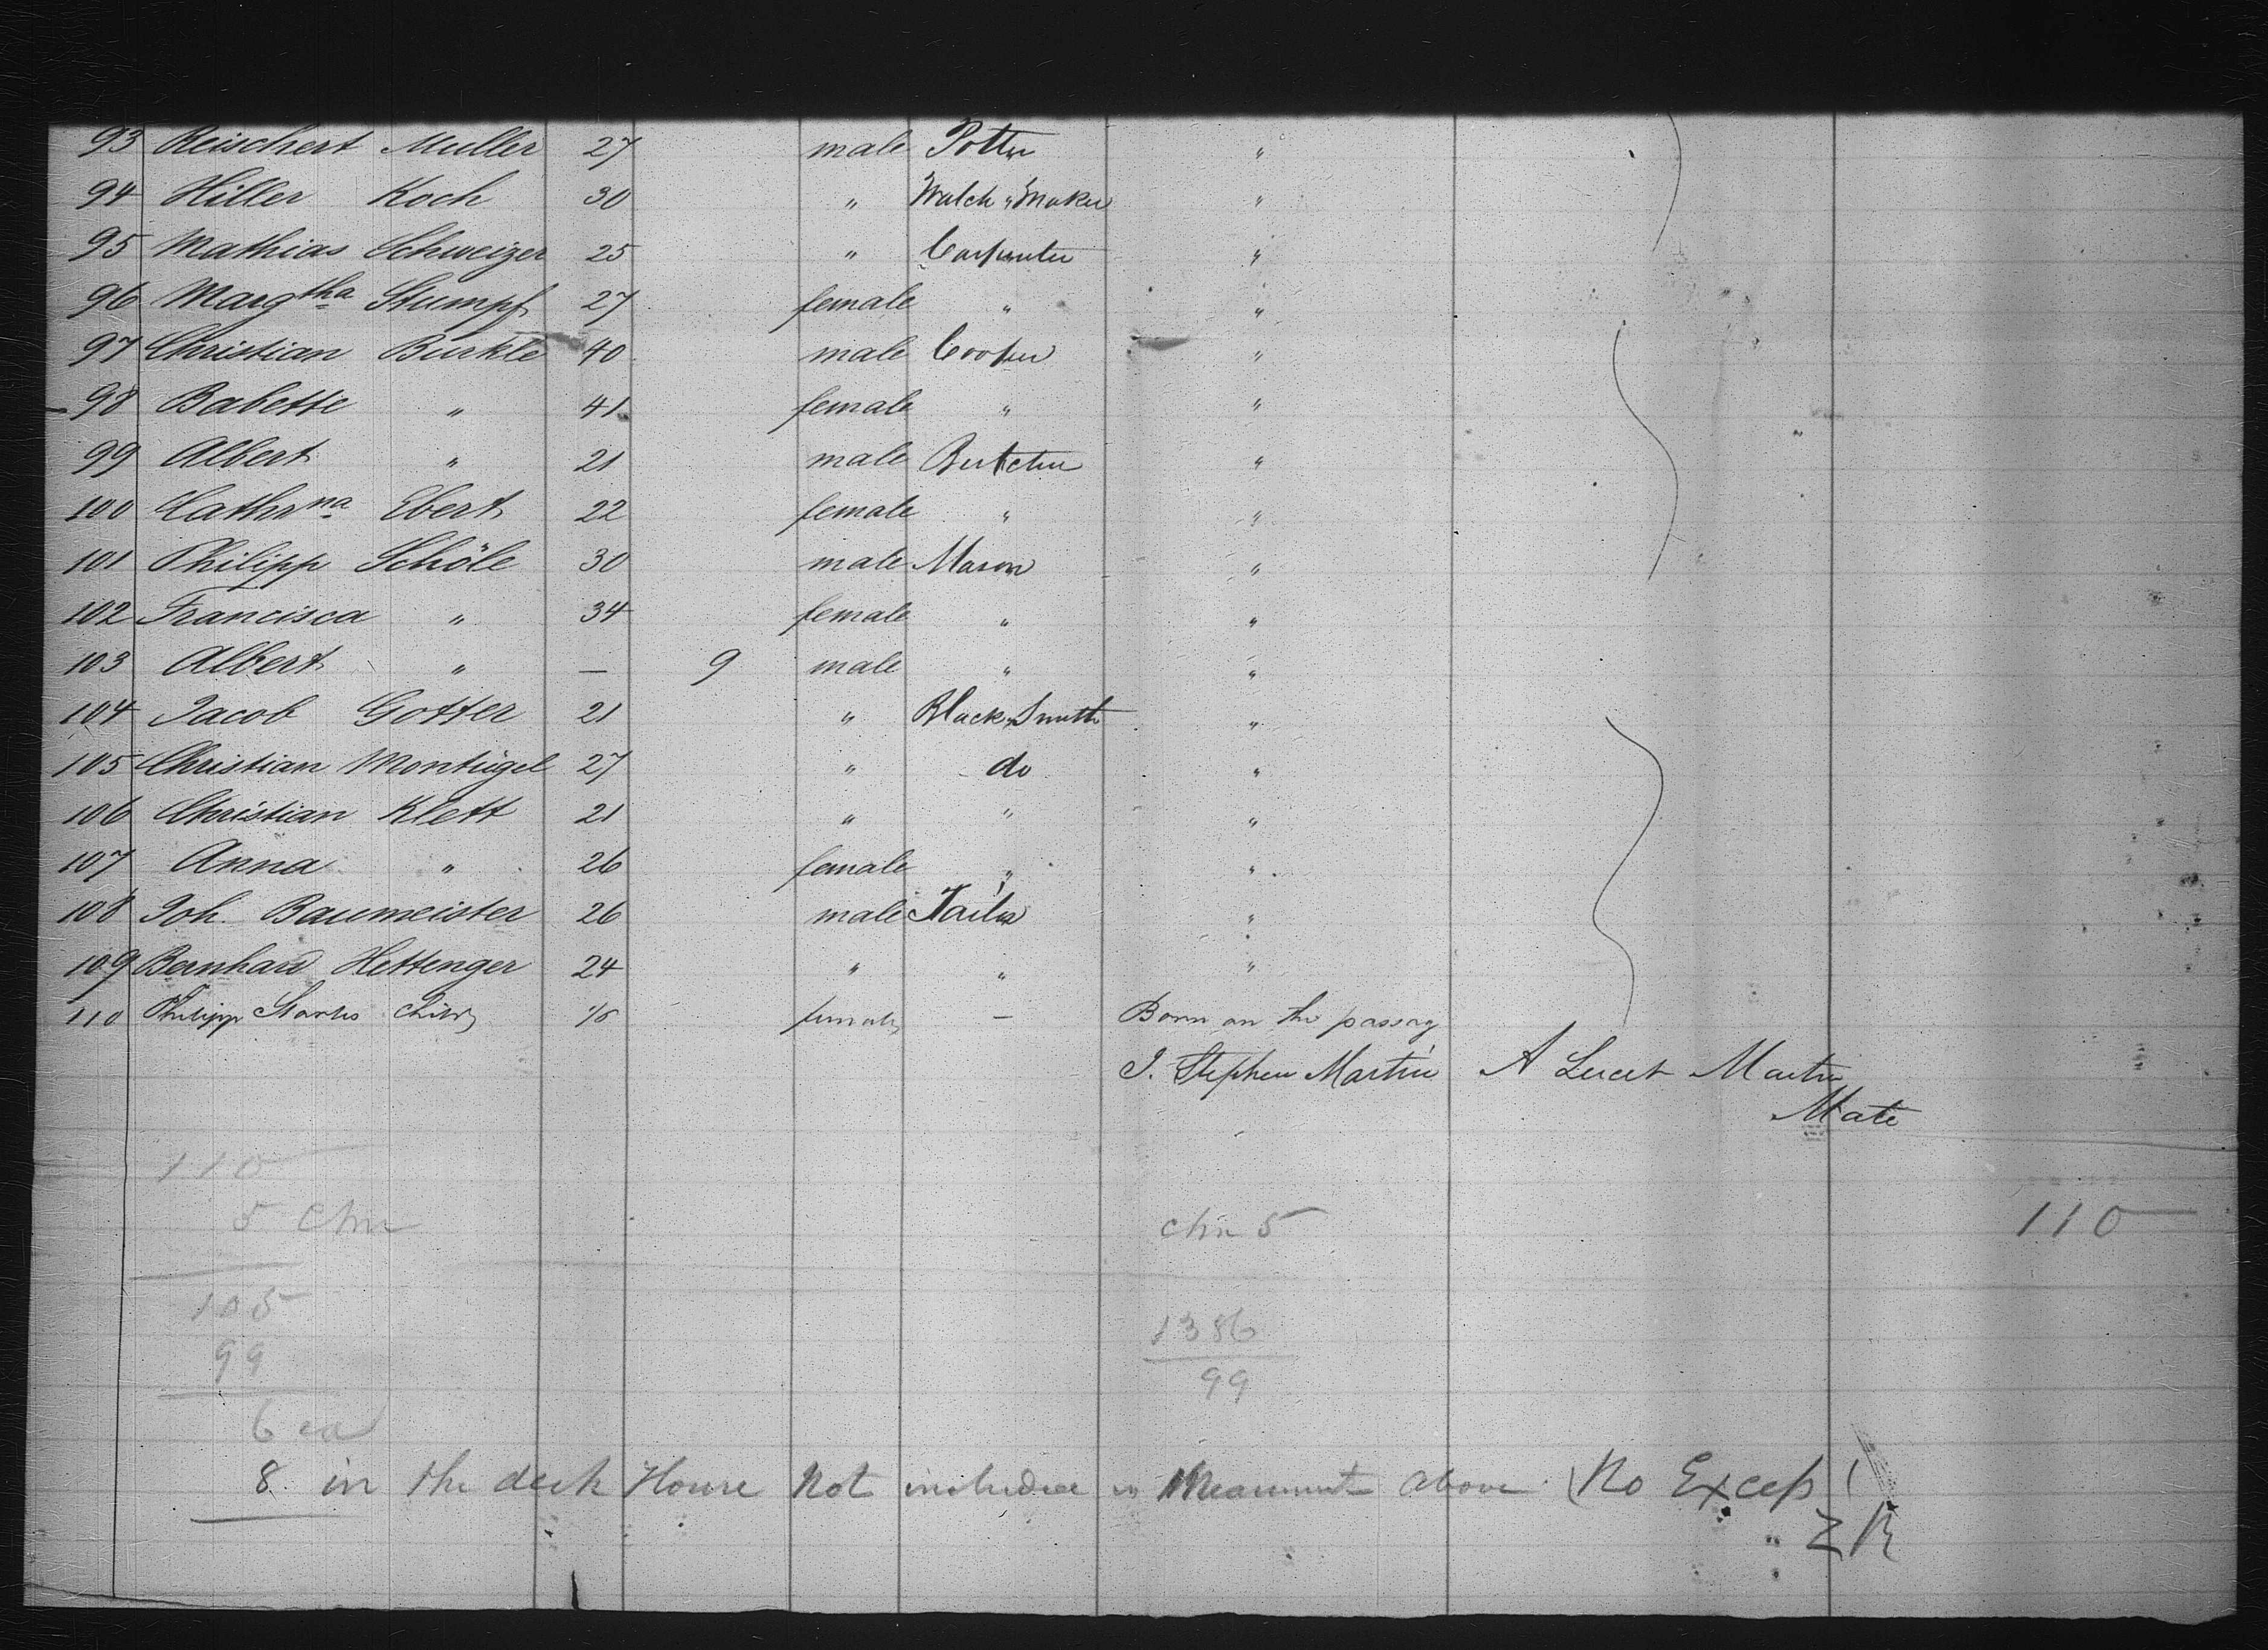 93 Reischert Muller 27 male Potter "
94 Hiller Koch 30 " Watch Maker "
95 Mathias Schweizer 25 " Carpenter "
96 Margtha Stumpf 27 female " "
97 Christian Burkle 40 male Cooper "
98 Babette " 41 female " "
99 Albert " 21 male Butcher "
100 Cathrna Ebert 22 female " "
101 Philipp Schöle 30 male Mason "
102 Francisca " 34 female " "
103 Albert " — 9 male " "
104 Jacob Gotter 21 " Black Smith "
105 Christian 27 " do "
106 Christian Klett 21 " " "
107 Anna " 26 female " "
108 Joh. Baumeister 26 male Tailor "
109 Bernhard Hettenger 24 " " "
110 Philipp child female — Born on the passag
J. Stephen Martin A Martin
Mate
110
5 Chn chn 5 110
105
99
1386
99
6
8 in the deck House Not included in Measurment above No Excess!